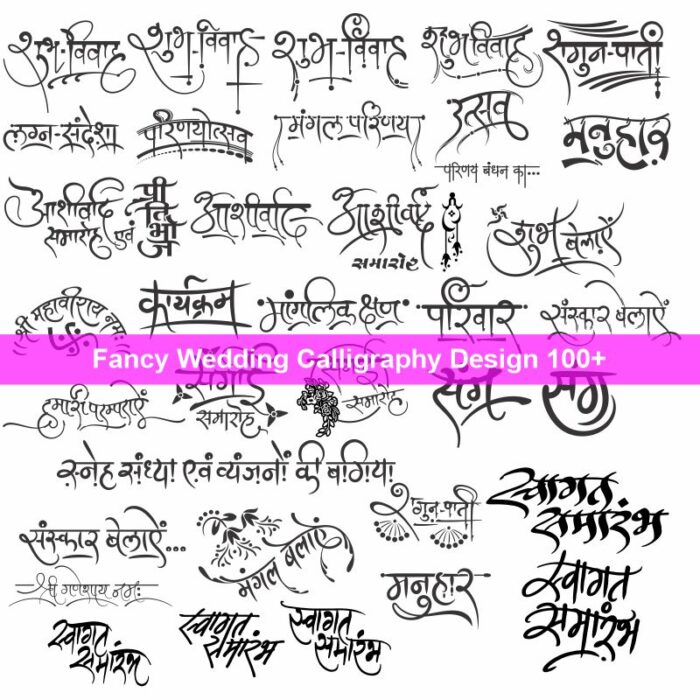 शुभ-विवाह शुभ-विवाह शुभ-विवाह शुभ विवाह सगुन-पाती
लग्न-संदेश परिणयोत्सव मंगल परिणय उत्सव मनुहार
परिणय बंधन का...
आशीर्वाद समारोह एवं प्रीतिभोज आशीर्वाद आशीर्वाद समारोह शुभ बेलाऐं
श्री महावीराय नमः कार्यक्रम मांगलिक क्षण परिवार संस्कार बेलाऐं
Fancy Wedding Calligraphy Design 100+
हमारी परम्पराऐं सगाई समारोह सगाई समारोह संग संग
स्नेह संध्या एवं व्यंजनों की बगिया
संस्कार बेलाऐं... मंगल बेलाऐं शगुन-पाती स्वागत समारंभ
श्री गणेशाय नमः मनुहार स्वागत समारंभ
स्वागत समारंभ स्वागत समारंभ स्वागत समारंभ